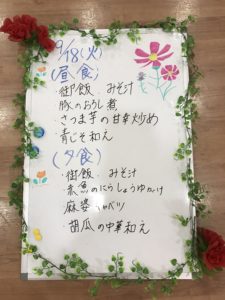 9/18(火)
(昼食)
・御飯 みそ汁
・豚のおろし煮
・さつま芋の甘辛炒め
・青じそ和え
(夕食)
・御飯 みそ汁
・煮魚のにらしょうゆかけ
・麻婆キャベツ
・胡瓜の中華和え